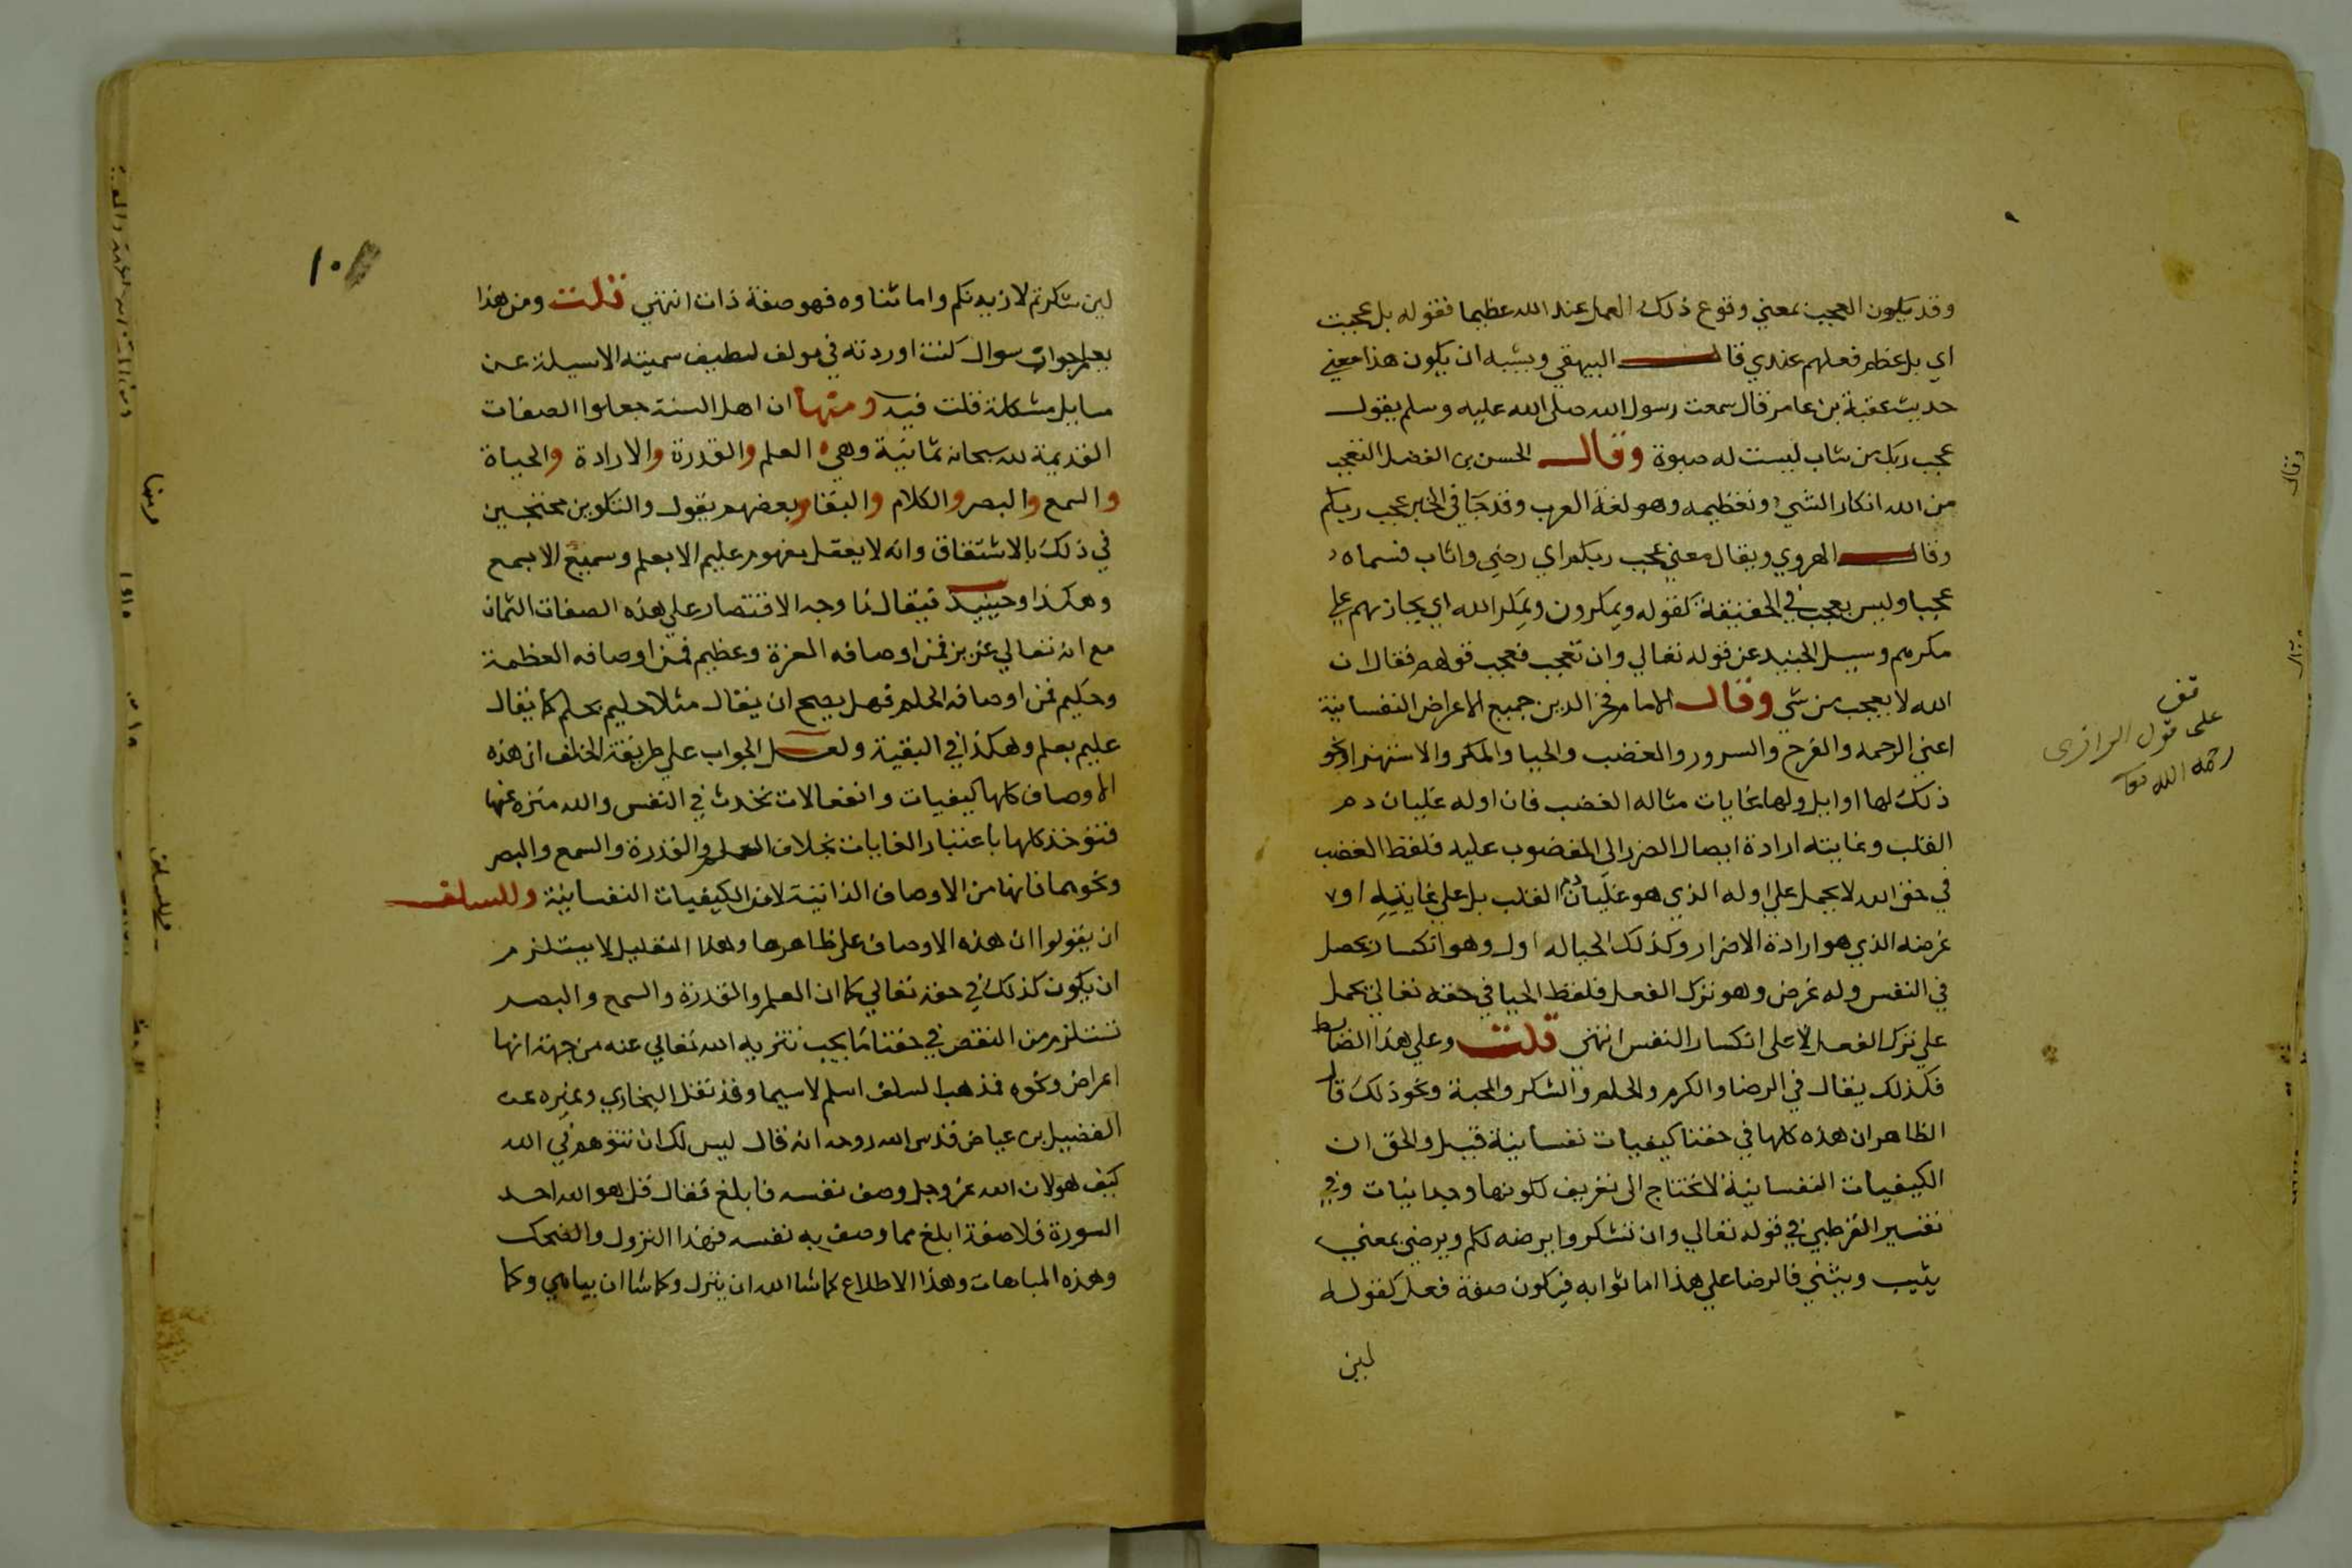 وقد يكون العجب بمعني وقوع ذلك العمل عند الله عظيما فقوله بل عجبت
اي بل عظم فعلهم عندي قال البيهقي ويشبه ان يكون هذا معني
حديث عقبة بن عامر قال سمعت رسول الله صلى الله عليه وسلم يقول
عجب ربك من شاب ليست له صبوة وقال الحسن بن الفضل التعجب
من الله انكار الشي وتعظيمه وهو لغة العرب وقد جا في الخبر عجب ربكم
وقال الهروي ويقال معني عجب ربكم اي رضي واثاب فسماه
عجبا وليس بعجب في الحقيقة كقوله ويمكرون ويمكر الله اي يجازيهم علي
مكرهم وسيل الجنيد عن قوله تعالي وان تعجب فعجب قولهم فقال ان
الله لا يعجب من شي وقال الامام فخر الدين جميع الاعراض النفسانية
اعني الرحمه والفرح والسرور والغضب والحيا والمكر والاستهزا ونحو
ذلك لها اوايل ولها غايات مثاله الغضب فان اوله غليان دم
القلب وغايته ارادة ايصال الضرر الى المغضوب عليه فلفظ الغضب
في حق الله لا يحمل علي اوله الذي هو غليان دم القلب بل علي غايته او
غرضه الذي هو ارادة الاضرار وكذلك الحيا له اول وهو انكسار يحصل
في النفس وله غرض وهو ترك الفعل فلفظ الحيا في حقه تعالي يحمل
علي ترك الفعل لا على انكسار النفس انتهي قلت وعلي هذا الضابط
فكذلك يقال في الرضا والكرم والحلم والشكر والمحبة ونحو ذلك قال
الظاهر ان هذه كلها في حقنا كيفيات نفسانية قيل والحق ان
الكيفيات النفسانية لا تحتاج الى تعريف لكونها وجدانيات وفي
تفسير القرطبي في قوله تعالي وان تشكروا يرضه لكم ويرضي بمعني
يثيب ويثني فالرضا علي هذا اما ثوابه فيكون صفة فعل كقوله
لين
قف
على قول الرازى
رحمه الله تعا
١٠
لين شكرتم لازيدنكم واما ثناوه فهو صفة ذات انتهي قلت ومن هذا
يعلم جواب سوال كنت اوردته في مولف لطيف سميته الاسيلة عن
مسايل مشكلة قلت فيه ومنها ان اهل السنة جعلوا الصفات
القديمة لله سبحانه ثمانية وهي العلم والقدرة والارادة والحياة
والسمع والبصر والكلام والبقا وبعضهم يقول والتكوين محتجين
في ذلك بالاشتقاق وانه لا يعقل مفهوم عليم الا بعلم وسميع الا بسمع
وهكذا وحينيد فيقال ما وجه الاقتصار علي هذه الصفات الثمان
مع انه تعالي عزيز فمن اوصافه العزة وعظيم فمن اوصافه العظمة
وحكيم فمن اوصافه الحلم فهل يصح ان يقال مثلا حليم بحلم كما يقال
عليم بعلم وهكذا في البقية ولعل الجواب علي طريقة الخلف ان هذه
الاوصاف كلها كيفيات وانفعالات تحدث في النفس والله منزه عنها
فتوخذ كلها باعتبار الغايات بخلاف العلم والقدرة والسمع والبصر
ونحوهما فانها من الاوصاف الذاتية لا من الكيفيات النفسانية وللسلف
ان يقولوا ان هذه الاوصاف على ظاهرها وهذا التعليل لا يستلزم
ان يكون كذلك في حقه تعالي كما ان العلم والقدرة والسمع والبصر
تستلزم من النقص في حقنا ما يجب تنزيه الله تعالي عنه من جهة انها
اعراض ونحوه فمذهب السلف اسلم لاسيما وقد نقل البخاري وغيره عن
الفضيل بن عياض قدس الله روحه انه قال ليس لك ان تتوهم في الله
كيف هو لان الله عز وجل وصف نفسه فابلغ فقال قل هو الله احد
السورة فلا صفة ابلغ مما وصف به نفسه فهذا النزول والضحك
وهذه المباهات وهذا الاطلاع كما شا الله ان ينزل وكما شا ان يباهي وكما